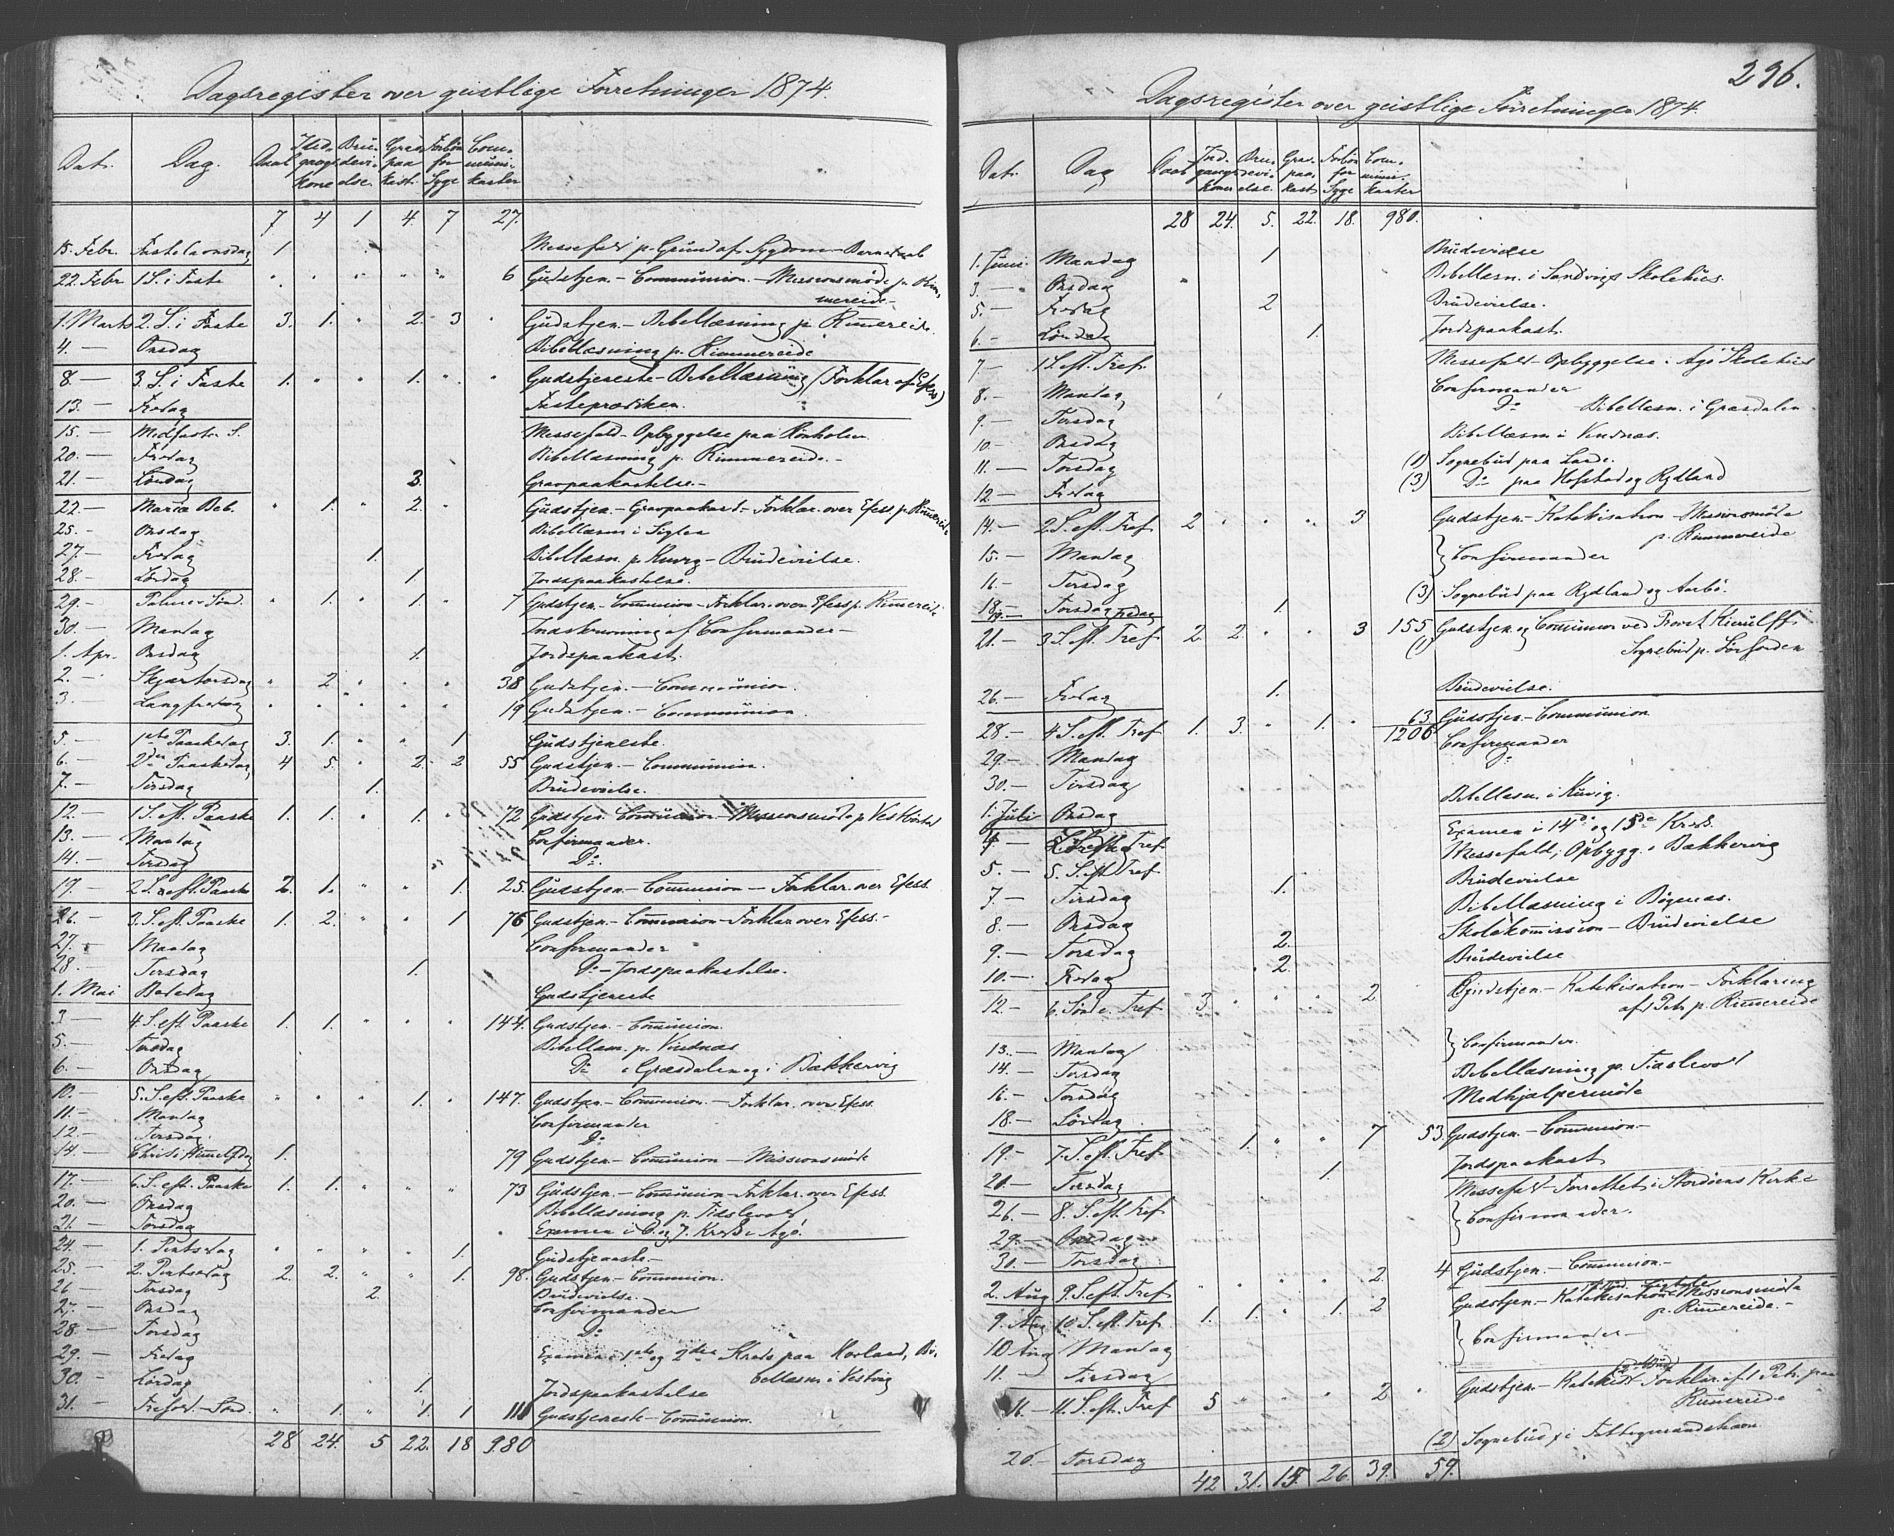 Dagsregister over geistlige Forretninger 1874.
Dat. Dag. Daab Indgangskone Brudevielse. Gravpaakast. Forbøn for Syge Communikanter
7 4 1 4. 7 27.
15. Febr. Fastelavnsdag 1 Messefald p. Grund af Sygdom – Barnedaab
22. Febr 1 S. i Faste " " " " " 6 Gudstjen. – Communion. – Missionsmøde p. Rimmereide –
1. Marts 2. S. i Faste 3. 1. " 2. 3 " Gudstjen. – Bibellæsning p. Rimmereide.
4. – Onsdag Bibellæsning p. Rimmereide
8. – 3. S. i Faste 1. " " 1. " " Gudstjeneste – Bibellæsning (Forklar. af Efes)
13. – Fredag Fasteprædiken.
15. – Midfaste S. Messefald – Opbyggelse paa
20. – Fredag Bibellæsning p. Rimmereide. –
21. – Lørdag 3. Gravpaakastelse. –
22. – Mariæ Beb. " 1. " 2. " Gudstjen. – Gravpaakast – Forklar. over Efess. p. Rimereide
25. – Onsdag Bibellæsn. i
27. – Fredag 1. Bibellæsn. p. – Brudevielse.
28. – Lørdag 1. Jordspaakastelse.
29. – Palme Sønd. " 1. " 1. " 7 Gudstjen. – Communion – Forklar. over Efess p. Rimereide
30. – Mandag Indskrivning af Confirmander –
1. Apr. Onsdag 1. Jordspaakast.
2. – Skjærtorsdag " 2 " " " 38 Gudstjen. – Communion.
3. Langfredag " " " " " 19 Gudstjen. – Communion.
5. – 1ste Paaskedag 3. 1. " " 1. Gudstjeneste.
6. – 2den Paaskedag 4 5. " 2. 2 55 Gudstjen. – Communion.
7. – Tirsdag 1. Brudevielse.
12. – 1 S. eft. Paaske 1. 1. " 1. " 72 Gudstjen. Communion – Missionsmøde p
13. – Mandag Confirmander.
14. – Tirsdag Do.
19. – 2 S. eft. Paaske 2. 1. " " 1. 25. Gudstjen. – Communion – Forklar. over Efess.
26. – 3. S. eft. Paaske 1. 2. " " 1 76 Gudstjen. – Communion – Forklar over Efess. –
27. – Mandag Confirmander
28. Tirsdag 1. Do – Jordspaakastelse.
1. Mai Bededag Gudstjeneste
3 – 4. S. eft. Paaske 1. 1. " " " 144. Gudstjen. – Communion.
5. – Tirsdag Bibellæsn. p. Vindnæs
6. – Onsdag Do i Græsdalen og i Bakkervig
10. – 5. S. eft. Paaske " " " 1. " 147. Gudstjen. – Communion. – Forklar. over Efess.
11. – Mandag Confirmander
12. – Tirsdag. Do
14. – Christi Himmelfdag 1. 79 Gudstjen. – Communion – Missionsmøde
17. – 6. S. eft. Paaske 1. 1. " " " 73 Gudstjen. – Communion – Forklar. over Efess.
20. – Onsdag Bibellæsning p. Tidslevold
21. – Torsdag Examen i 6. og 7. Kreds i Agø.
24. – 1. Pintsedag " " " " 1. Gudstjeneste. –
25. – 2. Pintsedag 2. 2. " " 1. 98. Gudstjen. – Communion.
26 – Tirsdag 2. Brudevielse.
27. – Onsdag Confirmander
28. – Torsdag Do
29. – Fredag Examen i 1ste og 2den Kreds paa Hovland, Bi-
30. – Lørdag 1. bellæsn. i Vestvig
Jordspaakastelse
31. – Trefold. Sønd. " 1. " 1. 1 111 Gudstjeneste – Communion.
28 24. 5 22. 18 980
296.
Dagsregister over geistlige Forretninger 1874.
Dat. Dag Daab Indgangskoner Brudevielse. Gravpaakast Forbøn for Syge Communikanter
28 24. 5. 22. 18. 980.
1. Juni Mandag 1 Brudevielse
3. – " Onsdag Bibellæsn. i Sandvigs Skolehus.
5. – Fredag 2 Brudevielse.
6. – Lørdag 1. Jordspaakast.
7 – 1 S. eft. Tref. Messefald – Opbyggelse i Agø Skolehus
8. – Mandag Confirmander
9. – Tirsdag Do Bibellæsn. i Græsdalen
10. – Onsdag Bibellæsn i Vindnæs.
11. – Torsdag (1) Sognebud paa
12 – Fredag (3) Do paa Hofstad og Rydland
14. – 2 S. eft. Tref 2 " " " 3 Gudstjen. – Katekisation – Missionsmøde p. Rimmereide
15. – Mandag } Confirmander
16. – Tirsdag
18. – Torsdag 1. (3) Sognebud paa Rydland og Aarbø.
21 – 3 S. eft. Tref 2. 2. " " 3 155 Gudstjen. og Communion ved Provst
(1) Sognebud p.
26. – Fredag 1. Brudevielse.
28. – 4 S. eft. Tref 1. 3. " 1. " 63. Gudstjen. – Communion
1206
29. – Mandag Confirmander
30. – Tirsdag Do
1. Juli Onsdag Bibellæsn. i
4 – Examen i 14de og 15de Kreds.
5. – 5. S. eft Tref. Messefald, Opbygg. i Bakkervig
7 – Tirsdag 1. Brudevielse
8. – Onsdag Bibellæsning i Bøgenæs.
9. – Torsdag 2. Skolekommission – Brudevielse
10. – Fredag 2. Brudevielse
12. – 6. Sønd e. Tref. 3. " " " 2 Gudstjen. – Katekisation – Forklaring af 1 Petr. p. Rimereide
13. – Mandag } Confirmander.
14. – Tirsdag
16. – Torsdag Bibellæsning p. Tidslevold
18. – Lørdag Medhjælpermøde
19. – 7. S. eft. Tref. 1. " " 7 53. Gudstjen. – Communion –
20. – Tirsdag 1. Jordspaakast
26. – 8. S. eft. Tref Messefald – Forrettet i Stordøens Kirke
29. – Onsdag } Confirmander.
30. – Torsdag
2. Aug 9. S. eft Tref " " " " 2. 4 Gudstjen. – Communion. –
9. Aug 10. S. eft. Tref. 1. 1. " 1. 2 Gudstjen. – Katekisation – Missionsmøde p. Rimereide. –
10 Aug Mandag } Confirmander –
11. – Tirsdag
16. – 11. S. eft. Tref 5 " " " 2 " Gudstjen. – Katekis. Forklar. af 1 Petr. paa Rimereide
20. – Torsdag (2) Sognebud
42 31. 15 26. 39. 59.